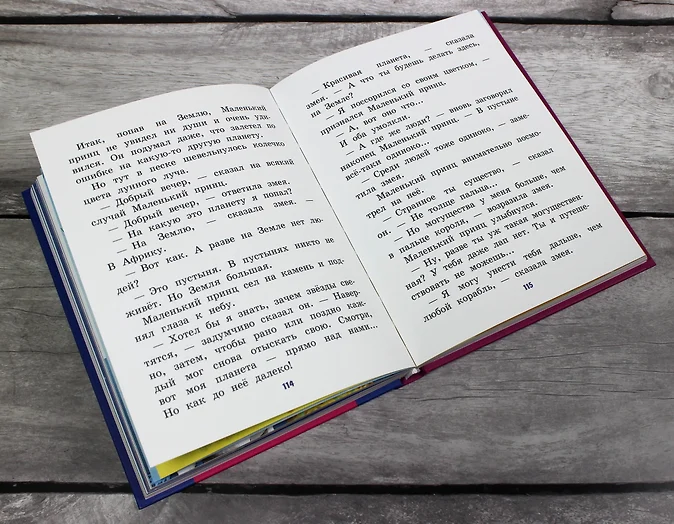 Итак, попав на Землю, Маленький
принц не увидел ни души и очень уди-
вился. Он подумал даже, что залетел по
ошибке на какую-то другую планету.
Но тут в песке шевельнулось колечко
цвета лунного луча.
— Добрый вечер, — сказал на всякий
случай Маленький принц.
— Добрый вечер, — ответила змея.
— На какую это планету я попал?
— На Землю, — сказала змея. —
В Африку.
— Вот как. А разве на Земле нет лю-
дей?
— Это пустыня. В пустынях никто не
живёт. Но Земля большая.
Маленький принц сел на камень и под-
нял глаза к небу.
— Хотел бы я знать, зачем звёзды све-
тятся, — задумчиво сказал он. — Навер-
но, затем, чтобы рано или поздно каж-
дый мог снова отыскать свою. Смотри,
вот моя планета — прямо над нами...
Но как до неё далеко!
114
— Красивая планета, — сказала
змея. — А что ты будешь делать здесь,
на Земле?
— Я поссорился со своим цветком, —
признался Маленький принц.
— А, вот оно что...
И оба умолкли.
— А где же люди? — вновь заговорил
наконец Маленький принц. — В пустыне
всё-таки одиноко...
— Среди людей тоже одиноко, — заме-
тила змея.
Маленький принц внимательно посмо-
трел на неё.
— Странное ты существо, — сказал
он. — Не толще пальца...
— Но могущества у меня больше, чем
в пальце короля, — возразила змея.
Маленький принц улыбнулся.
— Ну, разве ты уж такая могуществен-
ная? У тебя даже лап нет. Ты и путеше-
ствовать не можешь...
— Я могу унести тебя дальше, чем
любой корабль, — сказала змея.
115